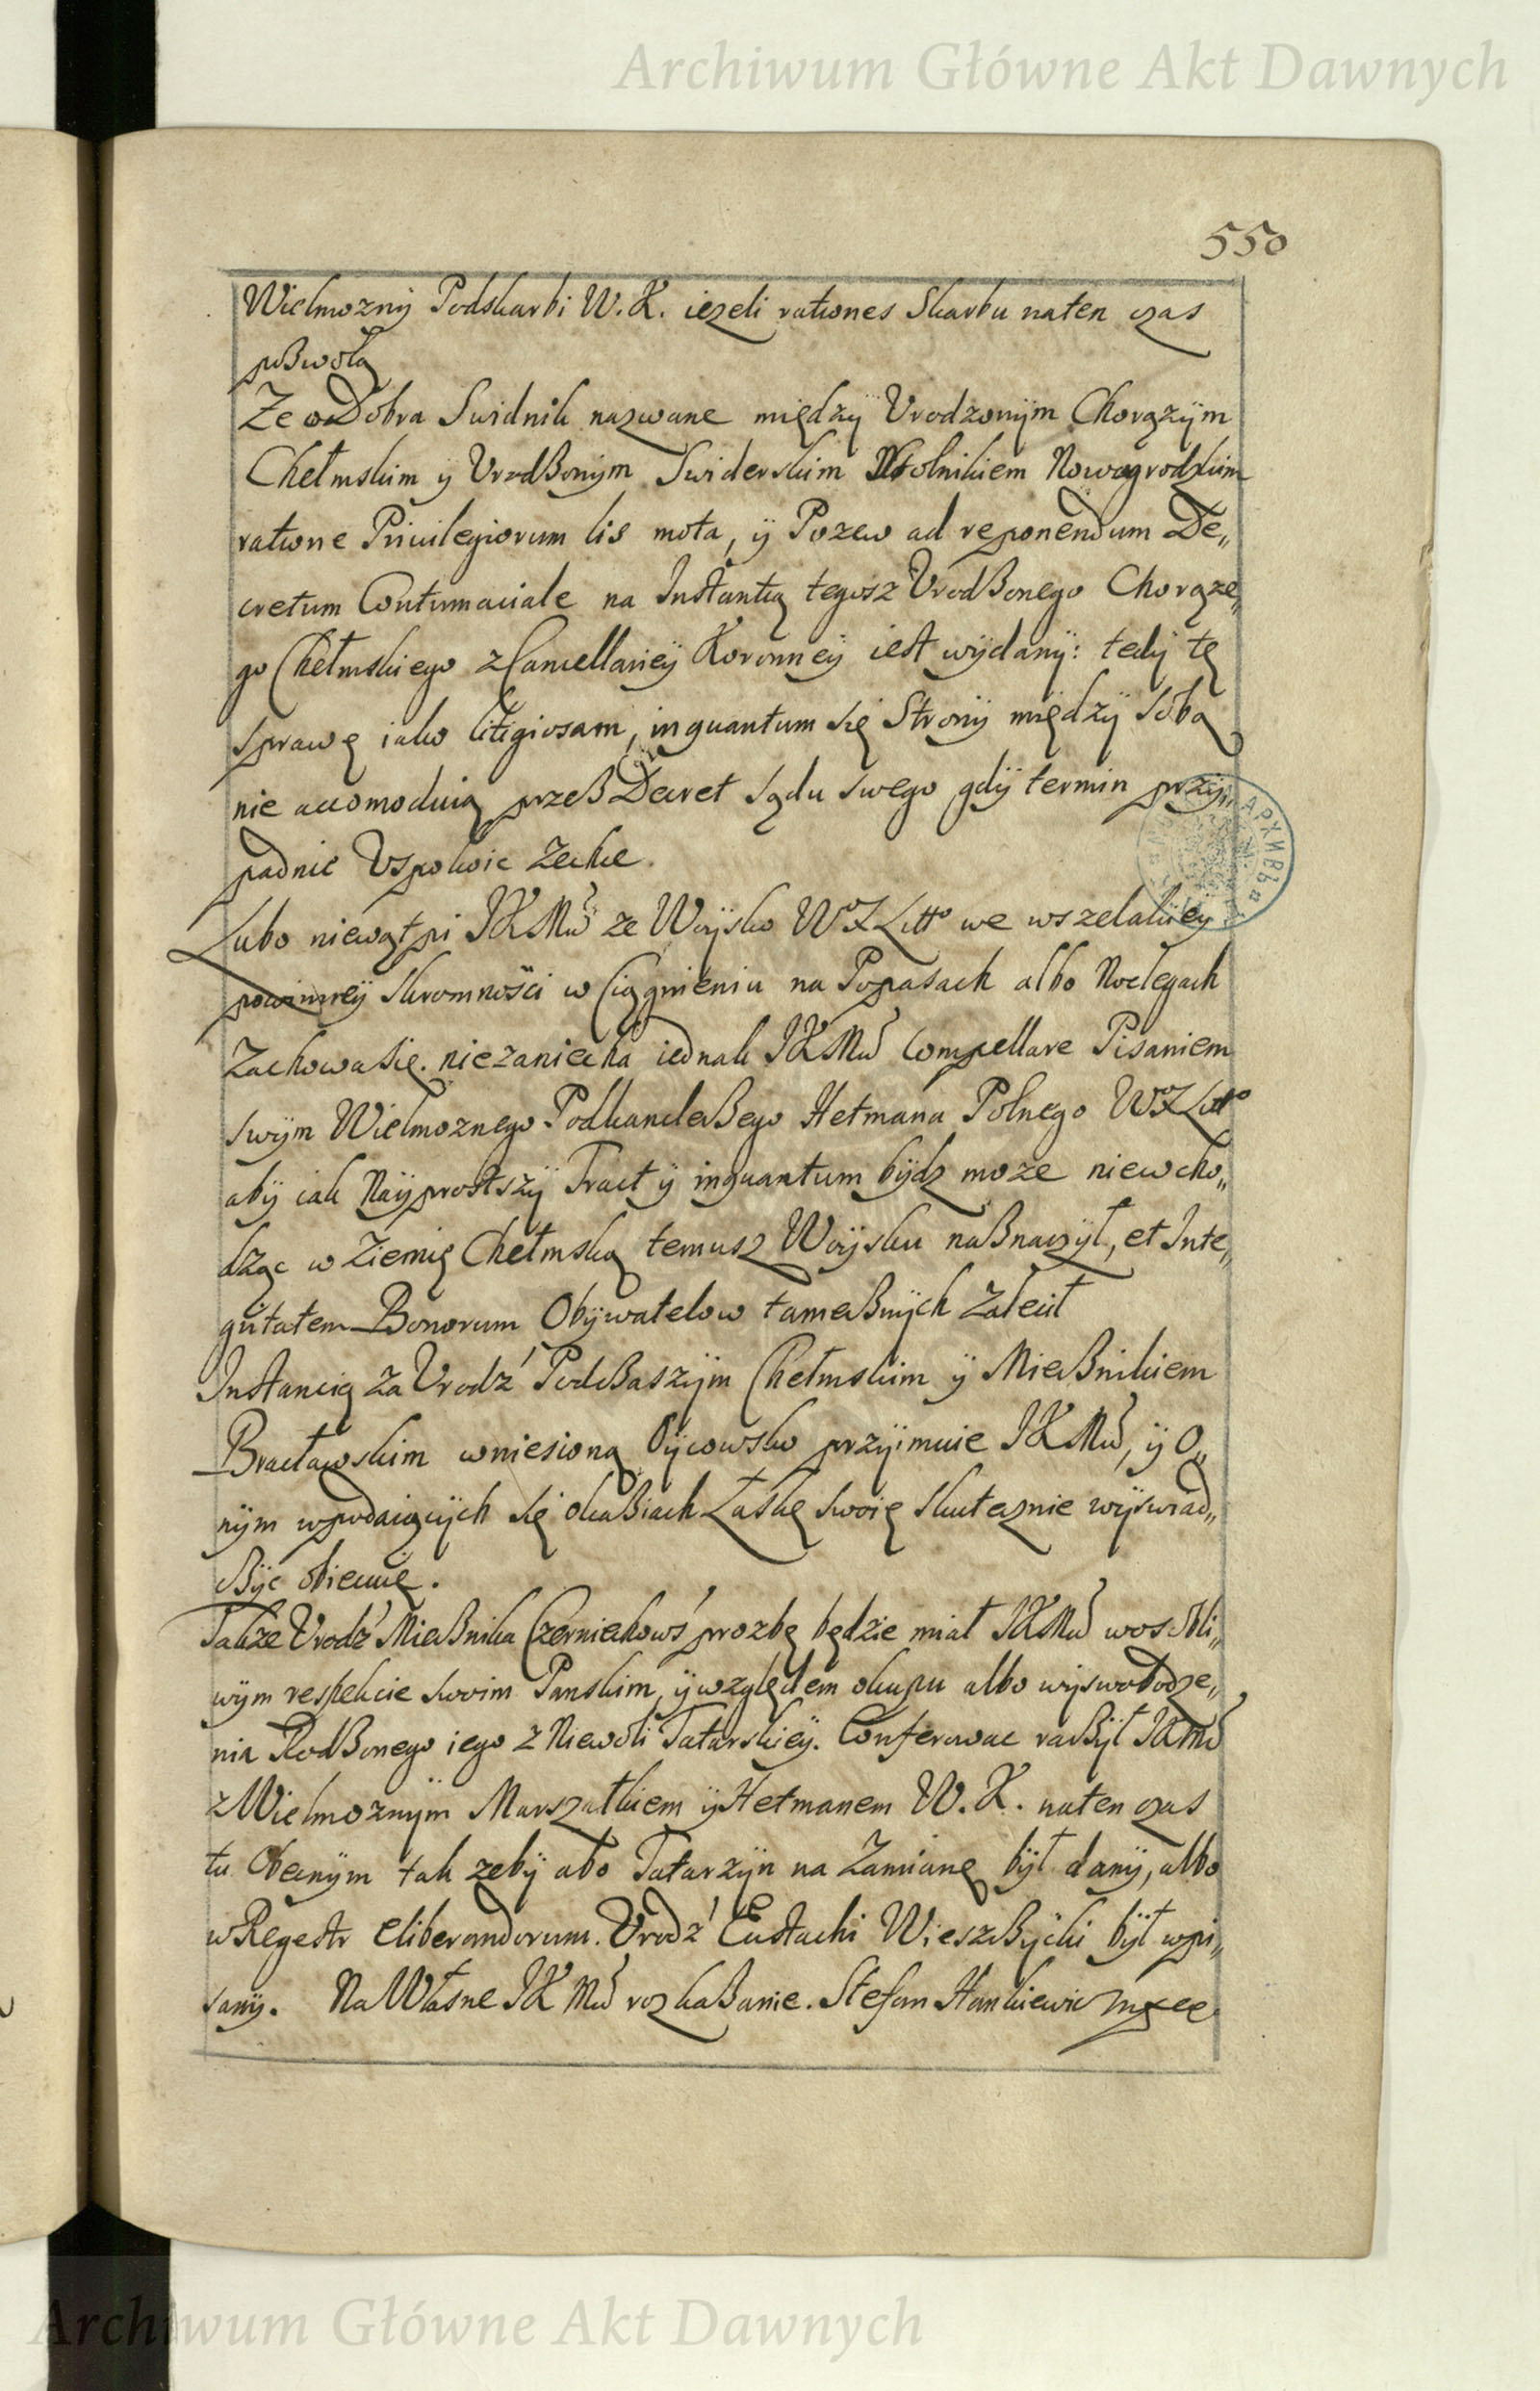 Archiwum Główne Akt Dawnych
550
Wielmozny Podskarbi W. K. iezeli rationes Skarbu naten czas
pozwolą
Ze o Dobra Swidnik nazwane między Vrodzonÿm Chorązÿm
Chełmskim y Vrodzonym Swiderskim Stolnikiem Nowogrodzkim
ratione Priuilegiorum lis mota, ÿ Pozew ad reponendum De„
cretum Contumaciale na Instantią tegosz Vrodzonego Chorąze„
go Chełmskiego z Cancellarieÿ Koronneÿ iest wÿdanÿ: tedÿ tę
sprawę iako litigiosam, inquantum się Stronÿ międzÿ sobą
nie accomoduią przez Decret sądu swego gdÿ termin przÿ„
padnie Vspokoic zechce.
Lubo niewątpi JKMć ze Woÿsko WXLitto we wszelakiey
powinneÿ skromności w Ciągnieniu na Popasach albo Noclegach
Zachowa się. niezaniecha iednak JKMć Compellare Pisaniem
swÿm Wielmoznego Podkanclerzego Hetmana Polnego WXLitto
abÿ iak Naÿprostszÿ Tract ÿ inquantum bÿdz moze niewcho„
dząc w Ziemię Chełmską temusz Woÿsku naznaczÿł, et Inte„
gritatem Bonorum Obÿwatelow tamecznÿch zalecił
Instancią za Vrodź Podczaszÿm Chełmskim ÿ Miecznikiem
Bracławskim wniesioną Oÿcowsko przÿimuie JKMć, ÿ O„
nÿm wpodaiącÿch się okaziach Łaskę swoię skutecznie wÿswiad„
czÿc obiecuie.
Takze Vrodź Miecznika Czerniechowś prozbę będzie miał JKMć wosobli„
wÿm respekcie swoim Panskim, ÿ względem okupu albo wÿswobodze„
nia Rodzonego iego z Niewoli Tatarskieÿ. Conferowac raczÿł JKMć
z Wielmoznÿm Marszałkiem ÿ Hetmanem W. K. naten czas
tu Obecnÿm tak zebÿ abo Tatarzÿn na Zamianę bÿł danÿ, albo
w Regestr eliberandorum. Vrodź Eustachi Wieszczÿcki bÿł wpi„
sanÿ. Na Własne JKMć rozkazanie. Stefan Hankiewic
Archiwum Główne Akt Dawnych